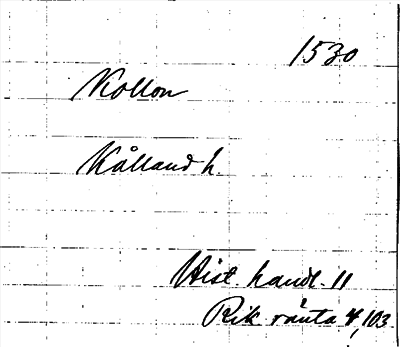 1530
Kollon
Kålland h.
Hist handl. 11
Rik ränta 4,103